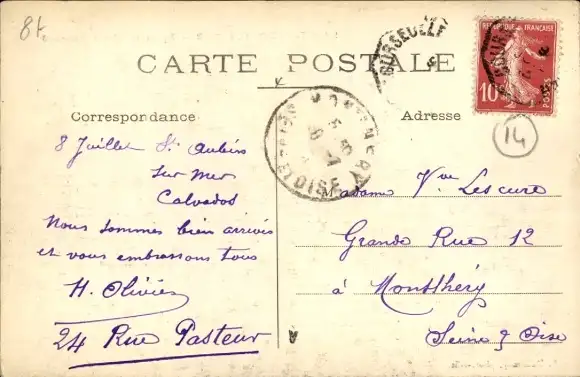 8f.
CARTE POSTALE
COURSEULLE
REPUBLIQUE FRANÇAISE
10
POSTES
14
Correspondance
Adresse
MONTLHERY
SEINE-ET-OISE
8 Juillet St Aubin
sur mer
Calvados
Nous sommes bien arrivés
et vous embrassons tous
H. Olivier
24 Rue Pasteur
Madame Vve Lescure
Grande Rue 12
à Montlhéry
Seine & Oise